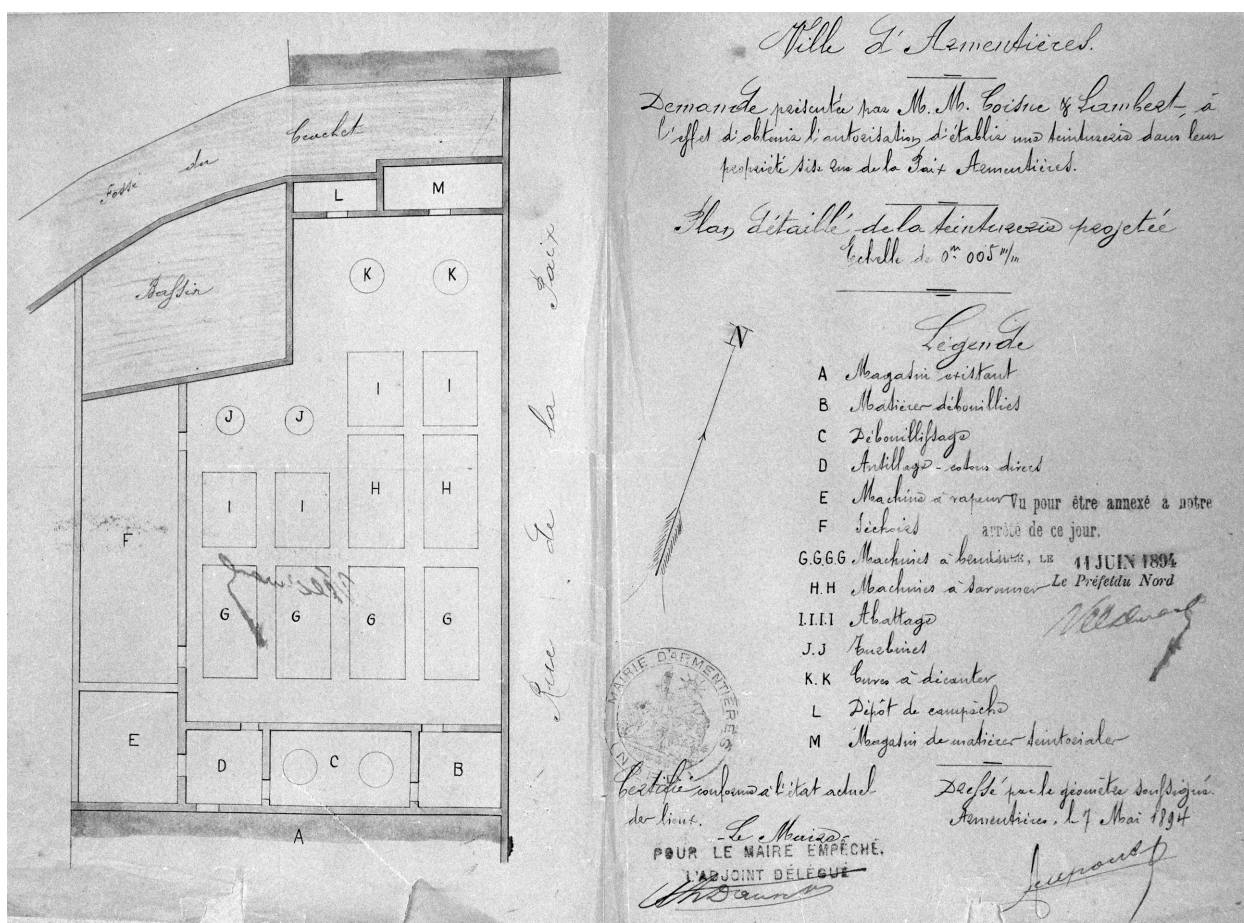 Fossé du Crachet
Bassin
L
M
K
K
I
I
J
J
H
H
I
I
F
G
G
G
G
E
D
C
B
A
Rue de la Paix
Ville d'Armentières.
Demande présentée par M. M. Coisne & Lambert à
l'effet d'obtenir l'autorisation d'établir une teinturerie dans leur
propriété sise rue de la Paix Armentières.
Plan détaillé de la teinturerie projetée
Echelle de 0m 005 m/m
N
Légende
A Magasin existant
B Matières débouillies
C Débouillissage
D cotons divers
E Machine à vapeur
F Séchoirs
G.G.G.G Machines à
H.H Machines à savonner
I.I.I.I Abattage
J.J Turbines
K.K Cuves à décanter
L Dépôt de campêche
M Magasin de matières tinctoriales
Vu pour être annexé a notre
arrêté de ce jour.
LE 11 JUIN 1894
Le Préfet du Nord
MAIRIE D'ARMENTIÈRES
Certifié conforme à l'état actuel
des lieux.
Le Maire
POUR LE MAIRE EMPÊCHÉ.
L'ADJOINT DÉLÉGUÉ
Dressé par le géomètre soussigné.
Armentières, l 7 Mai 1894